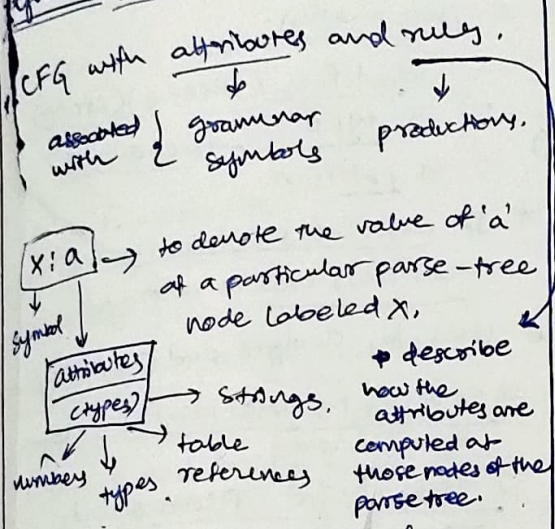 CFG with attributes and rules.
associated with
grammar symbols
productions.
X:a
to denote the value of 'a'
at a particular parse-tree
node labeled X.
symbol
attributes
(types)
strings.
table
references
numbers
types.
describe
how the
attributes are
computed at
those nodes of the
parse tree.